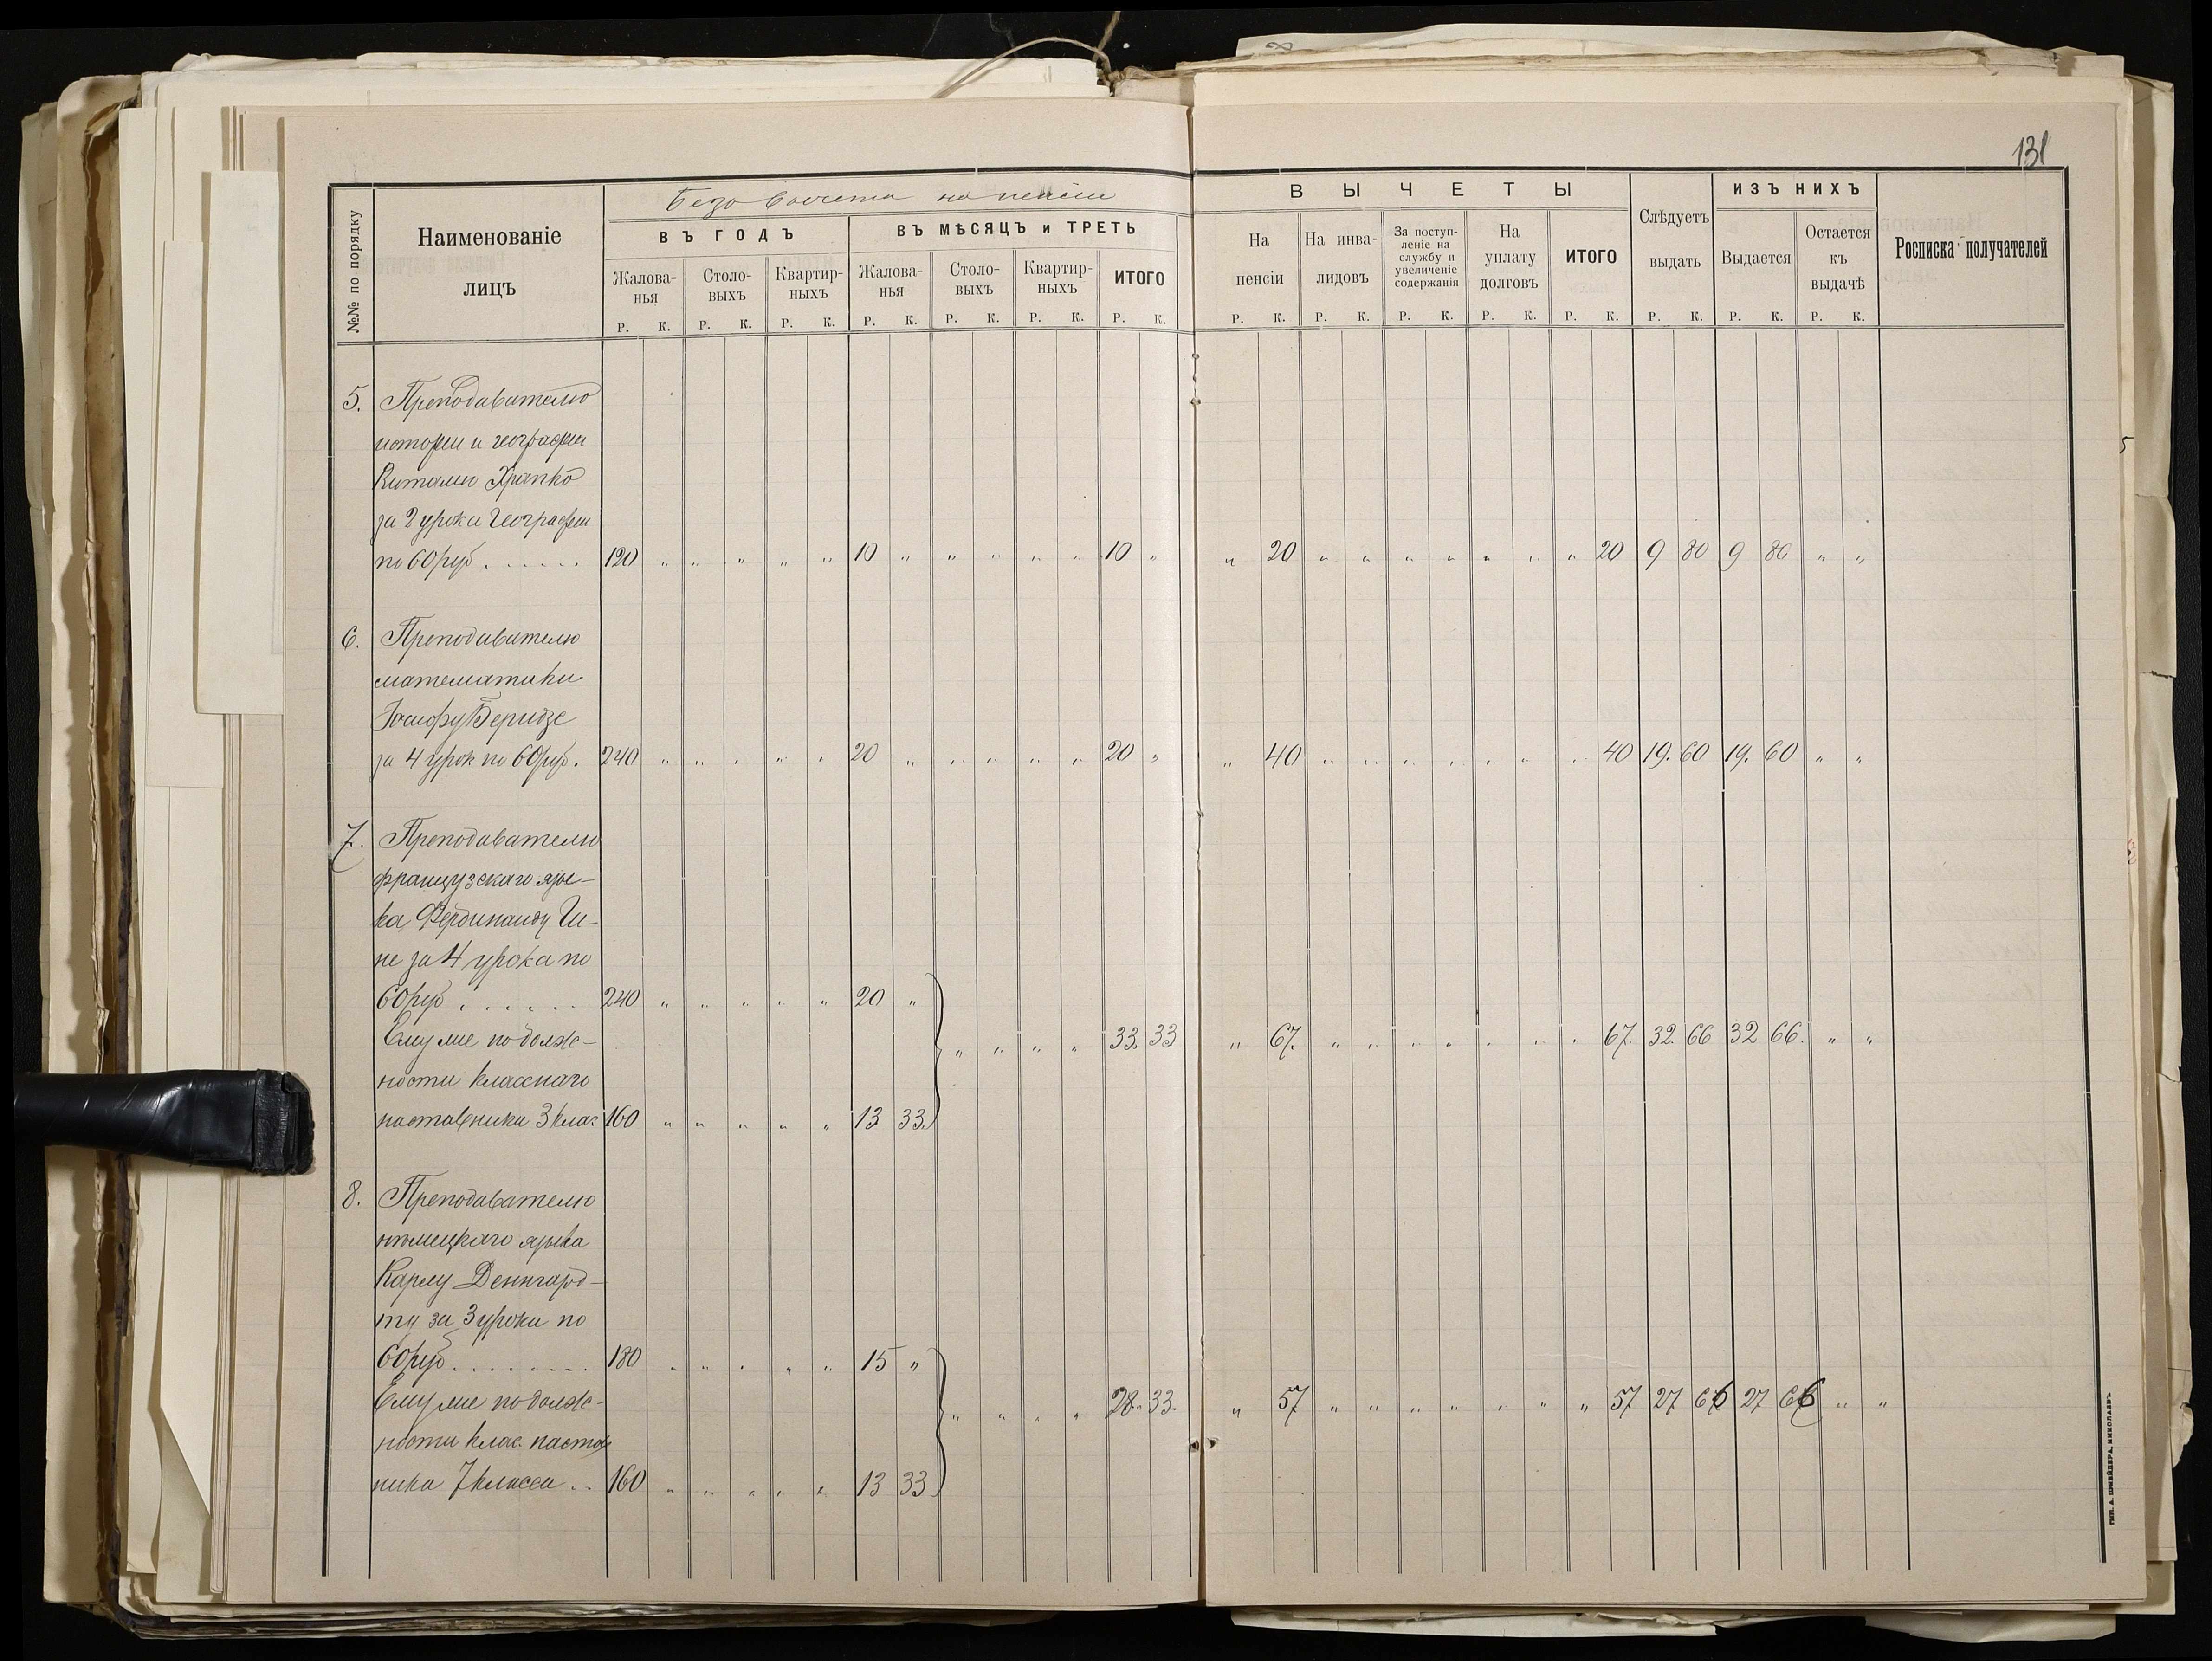 131
Безъ вычета на пенсіи
№№ по порядку
Наименованіе лицъ
ВЪ ГОДЪ
ВЪ МѢСЯЦЪ и ТРЕТЬ
Жалова-нья
Столо-выхъ
Квартир-ныхъ
Жалова-нья
Столо-выхъ
Квартир-ныхъ
ИТОГО
Р. К. Р. К. Р. К. Р. К. Р. К. Р. К. Р. К.
ВЫЧЕТЫ
На пенсіи
На инва-лидовъ
За поступ-леніе на службу и увеличеніе содержанія
На уплату долговъ
ИТОГО
Слѣдуетъ выдать
ИЗЪ НИХЪ
Выдается
Остается къ выдачѣ
Росписка получателей
Р. К. Р. К. Р. К. Р. К. Р. К. Р. К. Р. К. Р. К.
5. Преподавателю
исторіи и географіи
Виталію Храпко
за 2 урока Географіи
по 60 руб. . . . . . 120 " " " " " 10 " " " " " 10 " " 20 " " " " " " " 20 9 80 9 80 " "
6. Преподавателю
математики
Іосифу Беридзе
за 4 урок по 60 руб. 240 " " " " " 20 " " " " " 20 " " 40 " " " " " " " 40 19. 60 19. 60 " "
7. Преподавателю
французскаго язы-
ка Фердинанду Ги-
не за 4 урока по
60 руб . . . . . . 240 " " " " " 20 "
Ему же по долж- " " " " 33. 33 " 67. " " " " " " " 67. 32. 66 32 66. " "
ности класснаго
наставника 3 клас 160 " " " " " 13 33.
8. Преподавателю
нѣмецкаго языка
Карлу Деннгард-
ту за 3 урока по
60 руб. . . . . . . . 180 " " " " " 15 "
Ему же по долж- " " " " 28. 33. " 57 " " " " " " " 57 27 66 27 66 " "
ности клас. настав
ника 7 класса . . 160 " " " " " 13 33
ТИП. А. ШНЕЙДЕРА, НИКОЛАЕВЪ